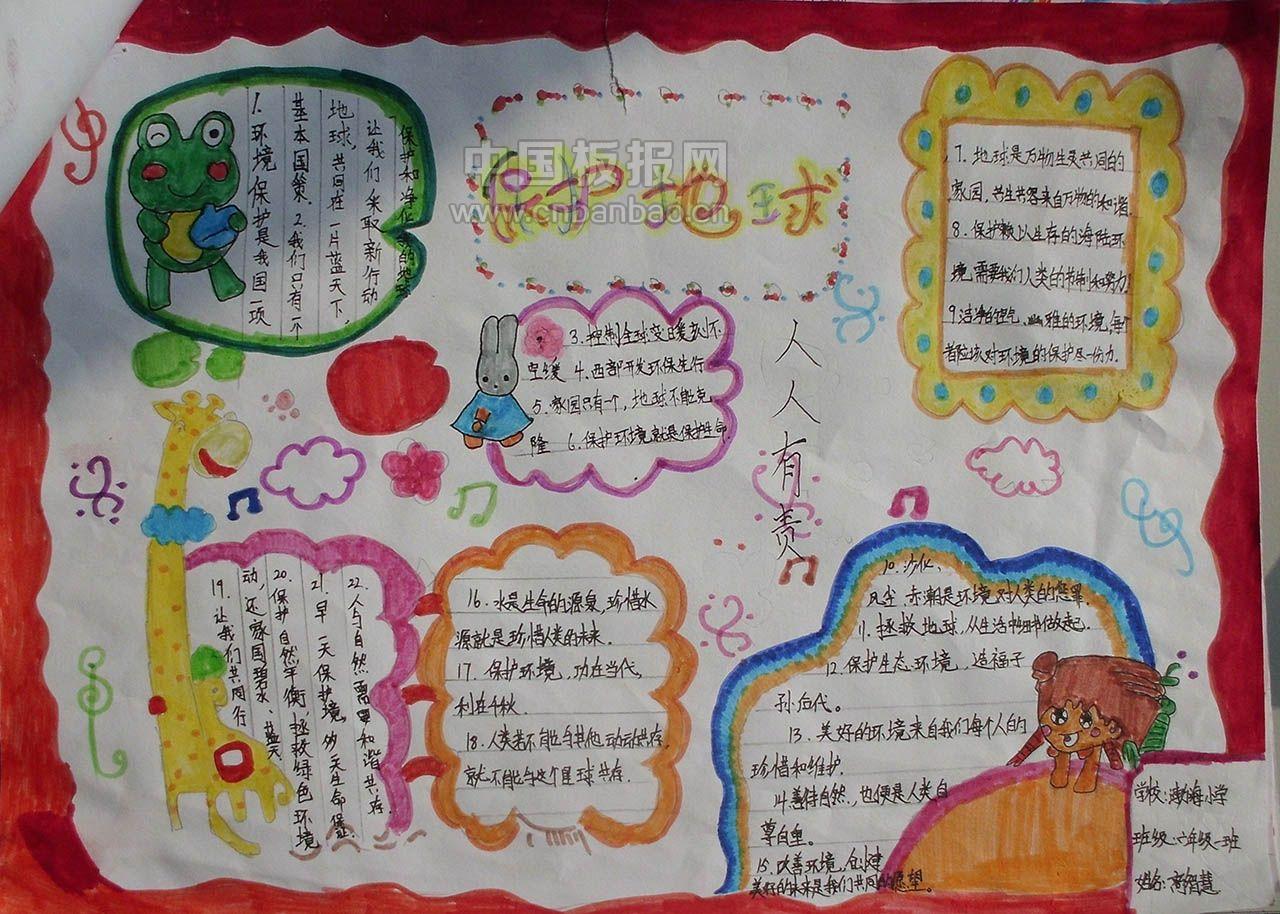 保护地球
中国板报网
www.cnbanbao.cn
人人有责
1.环境保护是我国一项
基本国策.2.我们只有一个
地球，共同在一片蓝天下，
让我们采取新行动
保护和净化
的地球
3.控制全球变暖刻不
容缓 4.西部开发环保先行
5.家园只有一个，地球不能克
隆 6.保护环境就是保护生命.
7.地球是万物生灵共同的
家园，共生共容来自万物的和谐.
8.保护赖以生存的海陆环
境，需要我们人类的节制和努力！
9.洁净的空气，幽雅的环境，每个
都应该对环境的保护尽一份力.
10.沙化、
风尘、赤潮是环境对人类的惩罪
11.拯救地球，从生活中细节做起.
12.保护生态环境，造福子
孙后代。
13.美好的环境来自我们每个人的
珍惜和维护.
14.善待自然，也便是人类自
尊自重.
15.改善环境，创建
美好的未来是我们共同的愿望。
16.水是生命的源泉，珍惜水
源就是珍惜人类的未来.
17.保护环境，功在当代，
利在千秋.
18.人类若不能与其他动动共存.
就不能与这个星球共存.
19.让我们共同行
动，还家国碧水、蓝天
20.保护自然平衡，拯救绿色环境
21.早一天保护环境，多一天生命保证.
22.人与自然需要和谐共存.
学校:渤海小学
班级:六年级一班
姓名:高智慧